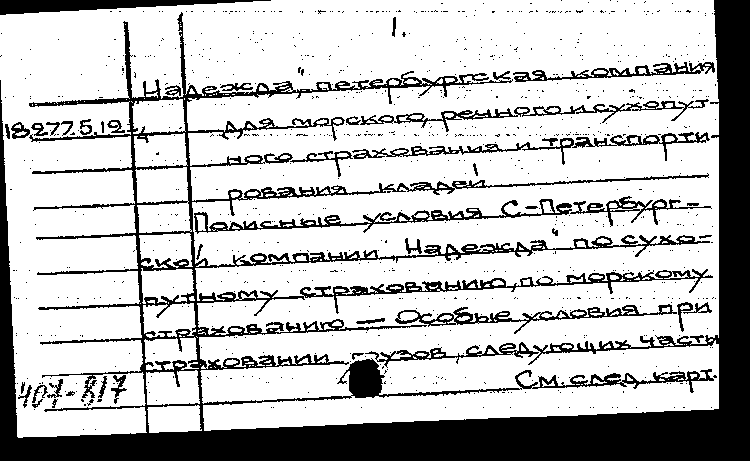 1.
„Надежда", петербургская компания
18.277.5.12
для морского, речного и сухопут-
ного страхования и транспорти-
рования кладей
Полисные условия С-Петербург-
ской компании „Надежда" по сухо-
путному страхованию, по морскому
страхованию — Особые условия при
страховании грузов, следующих части
См. след. карт.
407-817